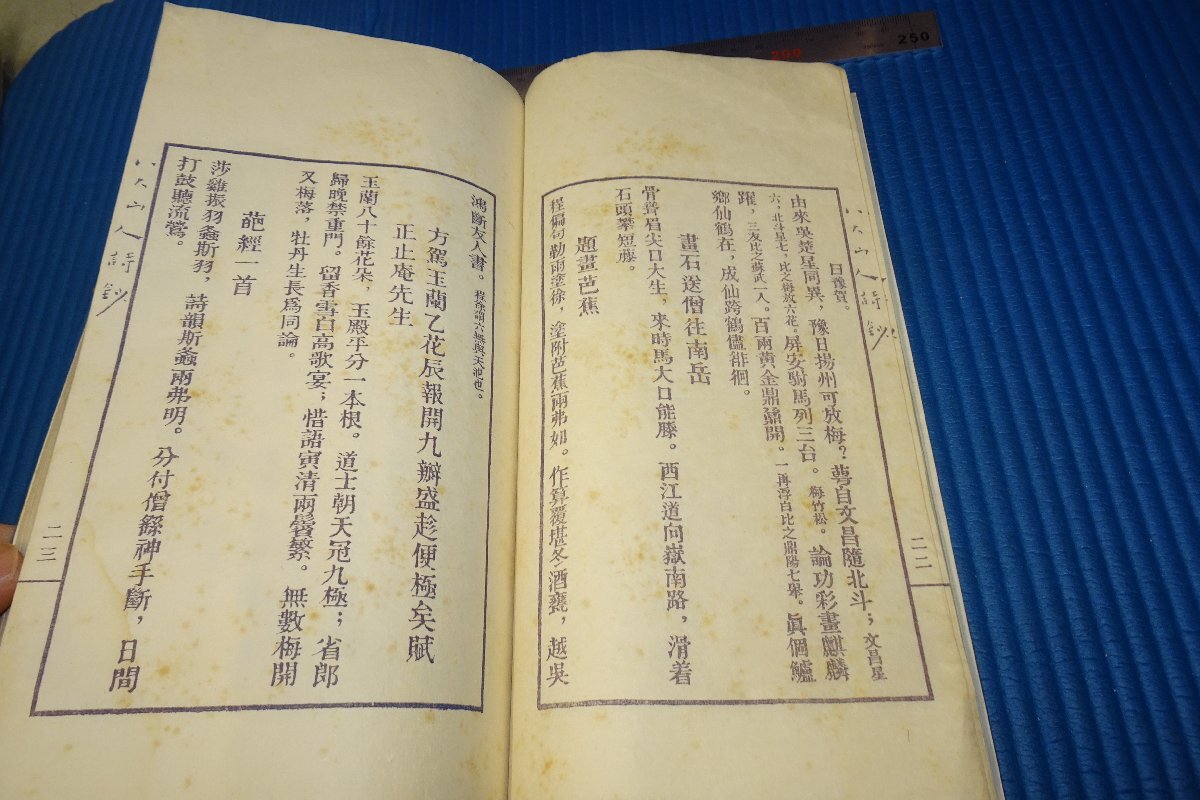 日豫賀。
由來吳楚星同異，豫日揚州可放梅？萼自文昌隨北斗；文昌星
六，北斗星七，比之梅放六花。屏安駙馬列三台。梅竹松。論功彩畫麒麟
躍，三友比之蘇武一人。百兩黃金鼎鼐開。一再浮白比之鼎陽七舉。眞個鱸
鄉仙鶴在，成仙跨鶴儘徘徊。
畫石送僧往南岳
骨聳眉尖口大生，來時馬大口能滕。西江道向嶽南路，滑着
石頭攀短藤。
題畫芭蕉
程偏句勒雨塗徐，塗附芭蕉雨弗如。作算覆堪冬酒甕，越吳
二二
八大山人詩鈔
鴻斷友人書。
方駕玉蘭乙花辰報開九瓣盛趁便極矣賦
正止庵先生
玉蘭八十餘花朵，玉殿平分一本根。道士朝天冠九極；省郎
歸晚禁重門。留香雪白高歌宴；惜語寅清兩鬢繁。無數梅開
又梅落，牡丹生長爲同論。
葩經一首
莎雞振羽螽斯羽，詩韻斯螽兩弗明。分付僧繇神手斷，日間
打鼓聽流鶯。
二三
八大山人詩鈔
250
200